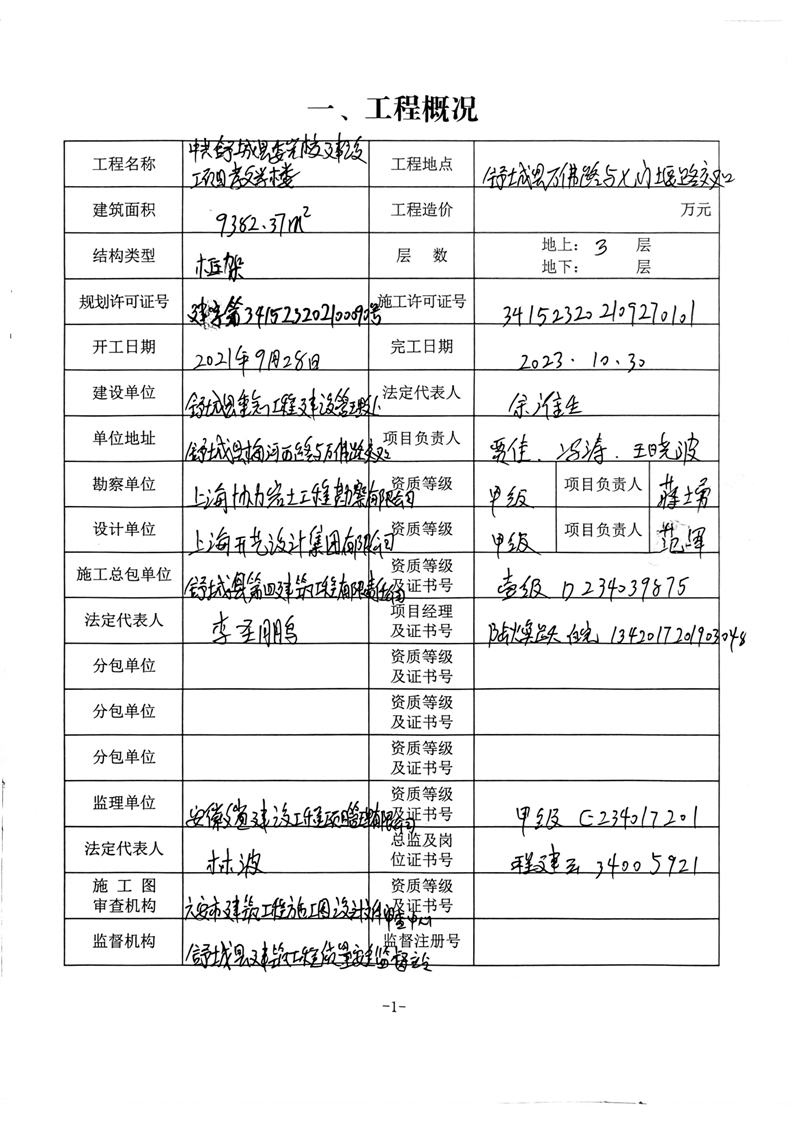 一、工程概况
工程名称 中共舒城县委党校建设
项目教学楼 工程地点 舒城县万佛路与 堰路交叉口
建筑面积 9382.37m² 工程造价 万元
结构类型 框架 层 数 地上：3 层
地下： 层
规划许可证号 建字第341523202100090号 施工许可证号 341523202109270101
开工日期 2021年9月28日 完工日期 2023.10.30
建设单位 舒城县重点工程建设管理 法定代表人 余 生
单位地址 舒城县梅河西路与万佛路交口 项目负责人 贾佳、冯涛、王晓波
勘察单位 上海协力岩土工程勘察有限公司 资质等级 甲级 项目负责人 蒋士勇
设计单位 上海开艺设计集团有限公司 资质等级 甲级 项目负责人 范军
施工总包单位 舒城县第四建筑工程有限责任公司 资质等级
及证书号 壹级 D234039875
法定代表人 李圣鹏 项目经理
及证书号 1342017201903048
分包单位 资质等级
及证书号
分包单位 资质等级
及证书号
分包单位 资质等级
及证书号
监理单位 安徽 建设工程项目管理有限公司 资质等级
及证书号 甲级 E234017201
法定代表人 林波 总监及岗
位证书号 程建云 34005921
施 工 图
审查机构 六安市建筑工程施工图设计文件审查中心 资质等级
及证书号
监督机构 舒城县建筑工程质量安全监督站 监督注册号
-1-